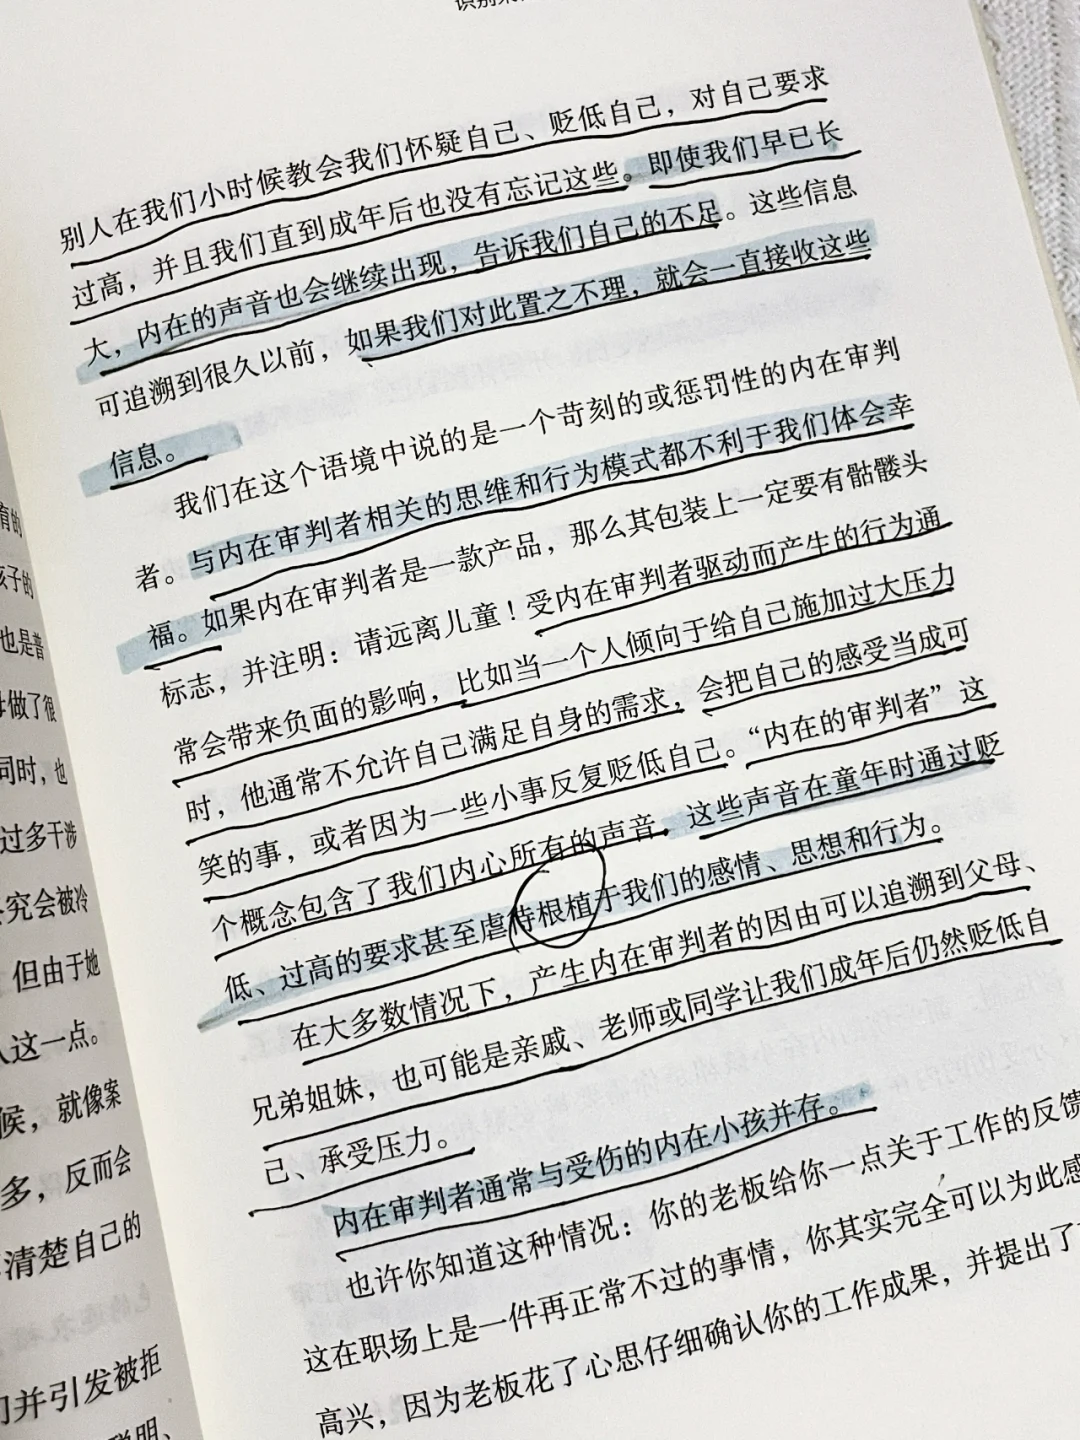 别人在我们小时候教会我们怀疑自己、贬低自己，对自己要求
过高，并且我们直到成年后也没有忘记这些。即使我们早已长
大，内在的声音也会继续出现，告诉我们自己的不足。这些信息
可追溯到很久以前，如果我们对此置之不理，就会一直接收这些
信息。
我们在这个语境中说的是一个苛刻的或惩罚性的内在审判
者。与内在审判者相关的思维和行为模式都不利于我们体会幸
福。如果内在审判者是一款产品，那么其包装上一定要有骷髅头
标志，并注明：请远离儿童！受内在审判者驱动而产生的行为通
常会带来负面的影响，比如当一个人倾向于给自己施加过大压力
时，他通常不允许自己满足自身的需求，会把自己的感受当成可
笑的事，或者因为一些小事反复贬低自己。“内在的审判者”这
个概念包含了我们内心所有的声音。这些声音在童年时通过贬
低、过高的要求甚至虐待根植于我们的感情、思想和行为。
在大多数情况下，产生内在审判者的因由可以追溯到父母、
兄弟姐妹，也可能是亲戚、老师或同学让我们成年后仍然贬低自
己、承受压力。
内在审判者通常与受伤的内在小孩并存。
也许你知道这种情况：你的老板给你一点关于工作的反馈
这在职场上是一件再正常不过的事情，你其实完全可以为此感
高兴，因为老板花了心思仔细确认你的工作成果，并提出了
育的
孩子的
也是普
母做了很
同时，也
过多干涉
究会被冷
但由于她
这一点。
候，就像案
多，反而会
清楚自己的
并引发被拒
聪明、